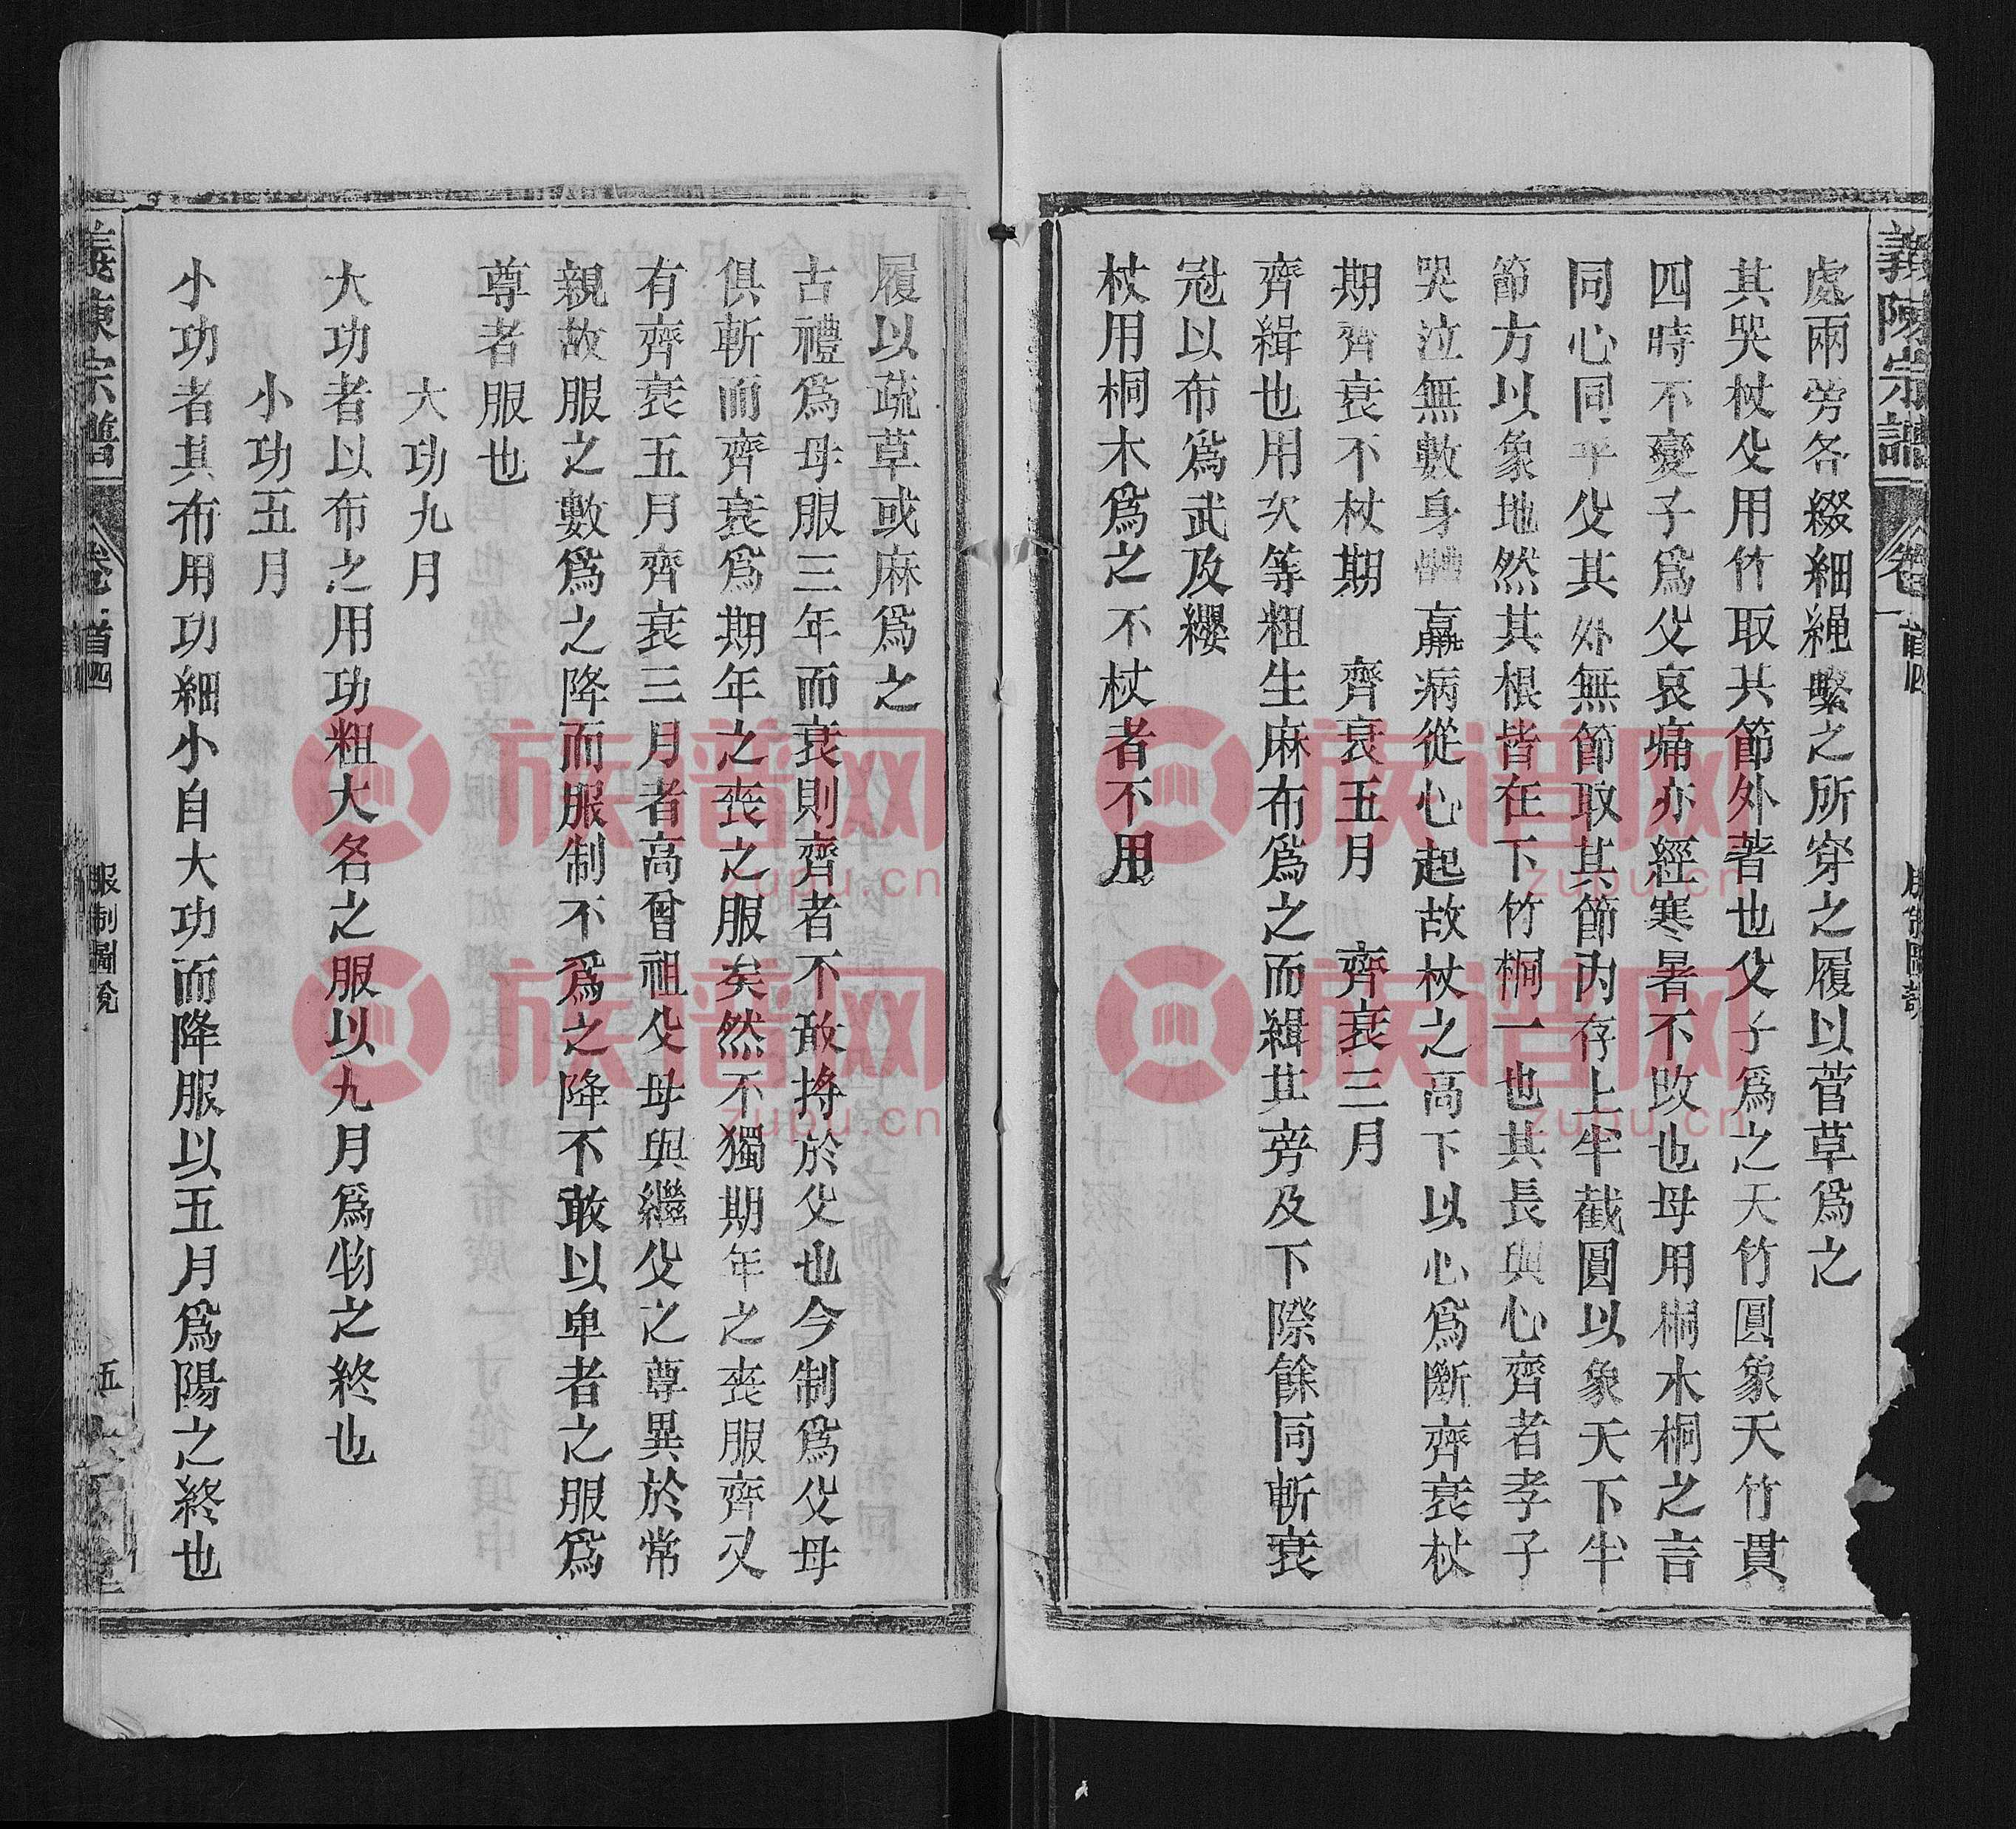 義陳宗譜
卷首四
處兩旁各綴細繩繫之所穿之履以菅草爲之
其哭杖父用竹取其節外著也父子爲之天竹圓象天竹貫
四時不變子爲父哀痛亦經寒暑不改也母用桐木桐之言
同心同乎父其外無節取其節內存上半截圓以象天下半
節方以象地然其根皆在下竹桐一也其長與心齊者孝子
哭泣無數身體羸病從心起故杖之高下以心爲斷齊衰杖
期齊衰不杖期　齊衰五月　齊衰三月
齊緝也用次等粗生麻布爲之而緝其旁及下際餘同斬衰
冠以布爲武及纓
杖用桐木爲之不杖者不用
履以疏草或麻爲之
古禮爲母服三年而衰則齊者不敢捋於父也今制爲父母
俱斬而齊衰爲期年之喪之服矣然不獨期年之喪服齊又
有齊衰五月齊衰三月者高曾祖父母與繼父之尊異於常
親故服之數爲之降而服制不爲之降不敢以卑者之服爲
尊者服也
大功九月
大功者以布之用功粗大名之服以九月爲物之終也
小功五月
小功者其布用功細小自大功而降服以五月爲陽之終也
義陳宗譜
卷首四
服制圖說
五
族譜网
zupu.cn
族譜网
zupu.cn
族譜网
zupu.cn
族譜网
zupu.cn